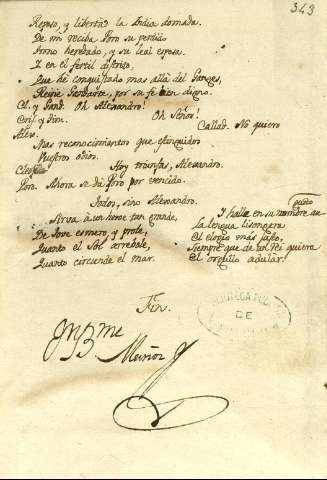 343
Reposo, y libertad la India domada.
De mi reciba Poro su perdido
Reino heredado, y su leal esposa.
Y en el fertil distrito,
Que he conquistado mas allá del Ganges,
Reine Gandarte, por su fe bien digno.
Cl. y Gand. Oh Alexandro!
Eris. y Tim. Oh Señor!
Alex. Callad. No quiero
Mas reconocimientos que estinguidos
Vuestros odios.
Cleofide Hoy triunfas, Alexandro.
Poro. Ahora se dá Poro por vencido.
Todos, sino Alexandro.
Sirva á un heroe tan grande,
De Jove esmero, y prole,
Quanto el Sol arrebole,
Quanto circunde el mar.
Y halle en su nombre gusto
La lengua lisongera
El elogio más justo,
Siempre que de un Rei quiera
El orgullo adular.
Fin.
BIBLIOTECA
DE
Muñoz